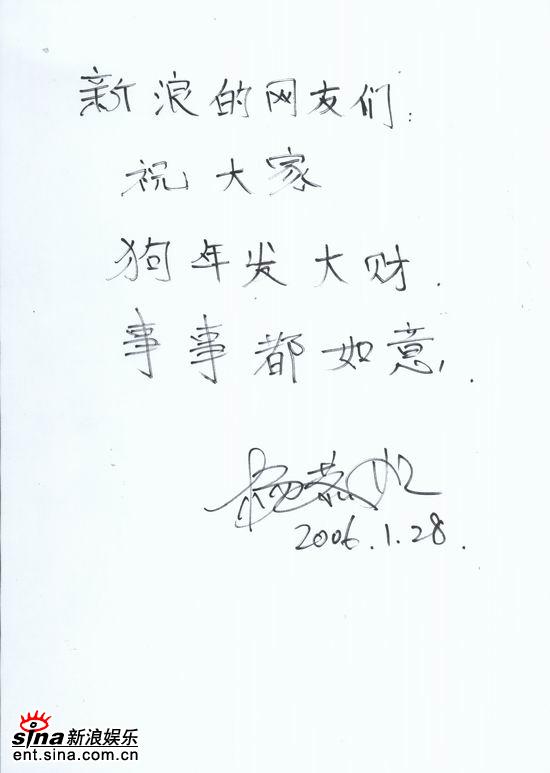 新浪的网友们：
祝大家
狗年发大财.
事事都如意.
杨恭如
2006.1.28.
sina新浪娱乐
ent.sina.com.cn